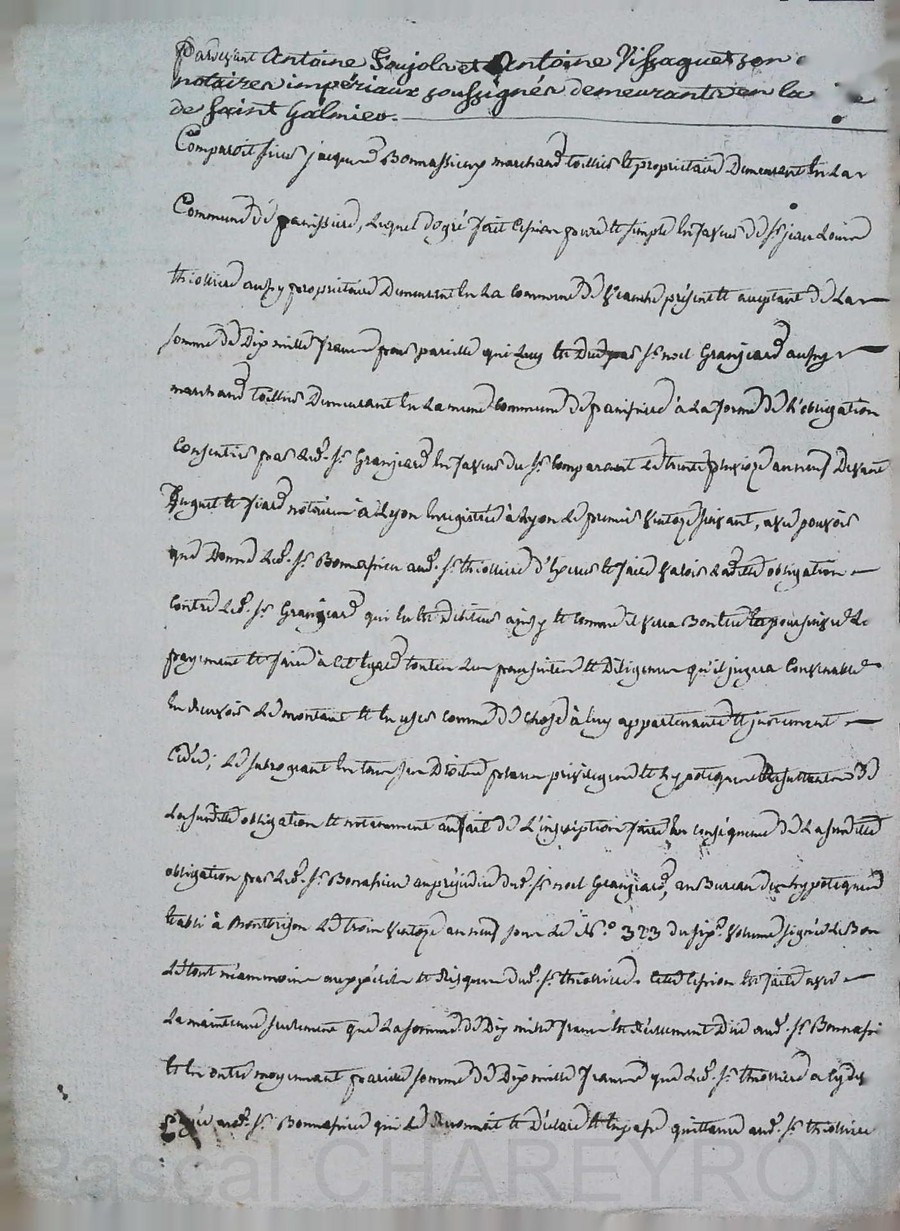 Pardevant Antoine Soujola et Antoine Vissaguet son
notaires impériaux soussignés demeurants en la
de Saint Galmier.
Comparoit sieur jacques Bonnassieux marchand toillier et propriétaire demeurant en la
Commune de panissiere, lequel de gré fait cession pure et simple en faveur de sr jean Louis
thiolliere aussy propriétaire demeurant en la commune de present et acceptant de la
somme de Dix mille francs pour pareille qui luy est due par sr noel Granjeard aussy
marchand toillier Demeurant en la meme commune de panissiere à la forme de l'obligation
Consentie par led. sr Granjeard en faveur du sr comparant le trente pluviôze an neuf Devant
et notaires à Lyon enregistrée à Lyon le premier ventoze suivant, avec pouvoir
que Donne led. sr Bonnassieu aud. sr thiolliere d'exercer et faire valoir ladte obligation
Contre led. sr Granjeard qui en est debiteur ainsy et comme il verra bon etre en poursuivre le
payement et faire à cet egard toutes les poursuites et Diligences qu'il jugera Convenable
en recevoir le montant et en user comme de chose à luy appartenante et justement
Cédée; le subrogeant en tous ses Droits places privileges et hypoteques Resultants de
La susdite obligation et notamment au fait de L'inscription faite en conséquence de La susditte
obligation par led. sr Bonassieu au préjudice dud. sr noel Granjeard, au Bureau des hypoteques
etabli à Montbrison le trois ventoze an neuf sous le N.o 323 du six.e volume signé le Bon
Le tout néammoins aux périls et Risques dud. sr thiolliere. cette cession est faite avec
La maintenue seulement que La somme de Dix mille francs est Réellement Due aud. sr Bonnassi
et en outre moyennant pareille somme de Dix mille francs que led. sr thiolliere a cy des
aud. sr Bonnassieu qui le Reconnoit et Déclare et en passe quittance aud. sr thiolliere
Pascal CHAREYRON